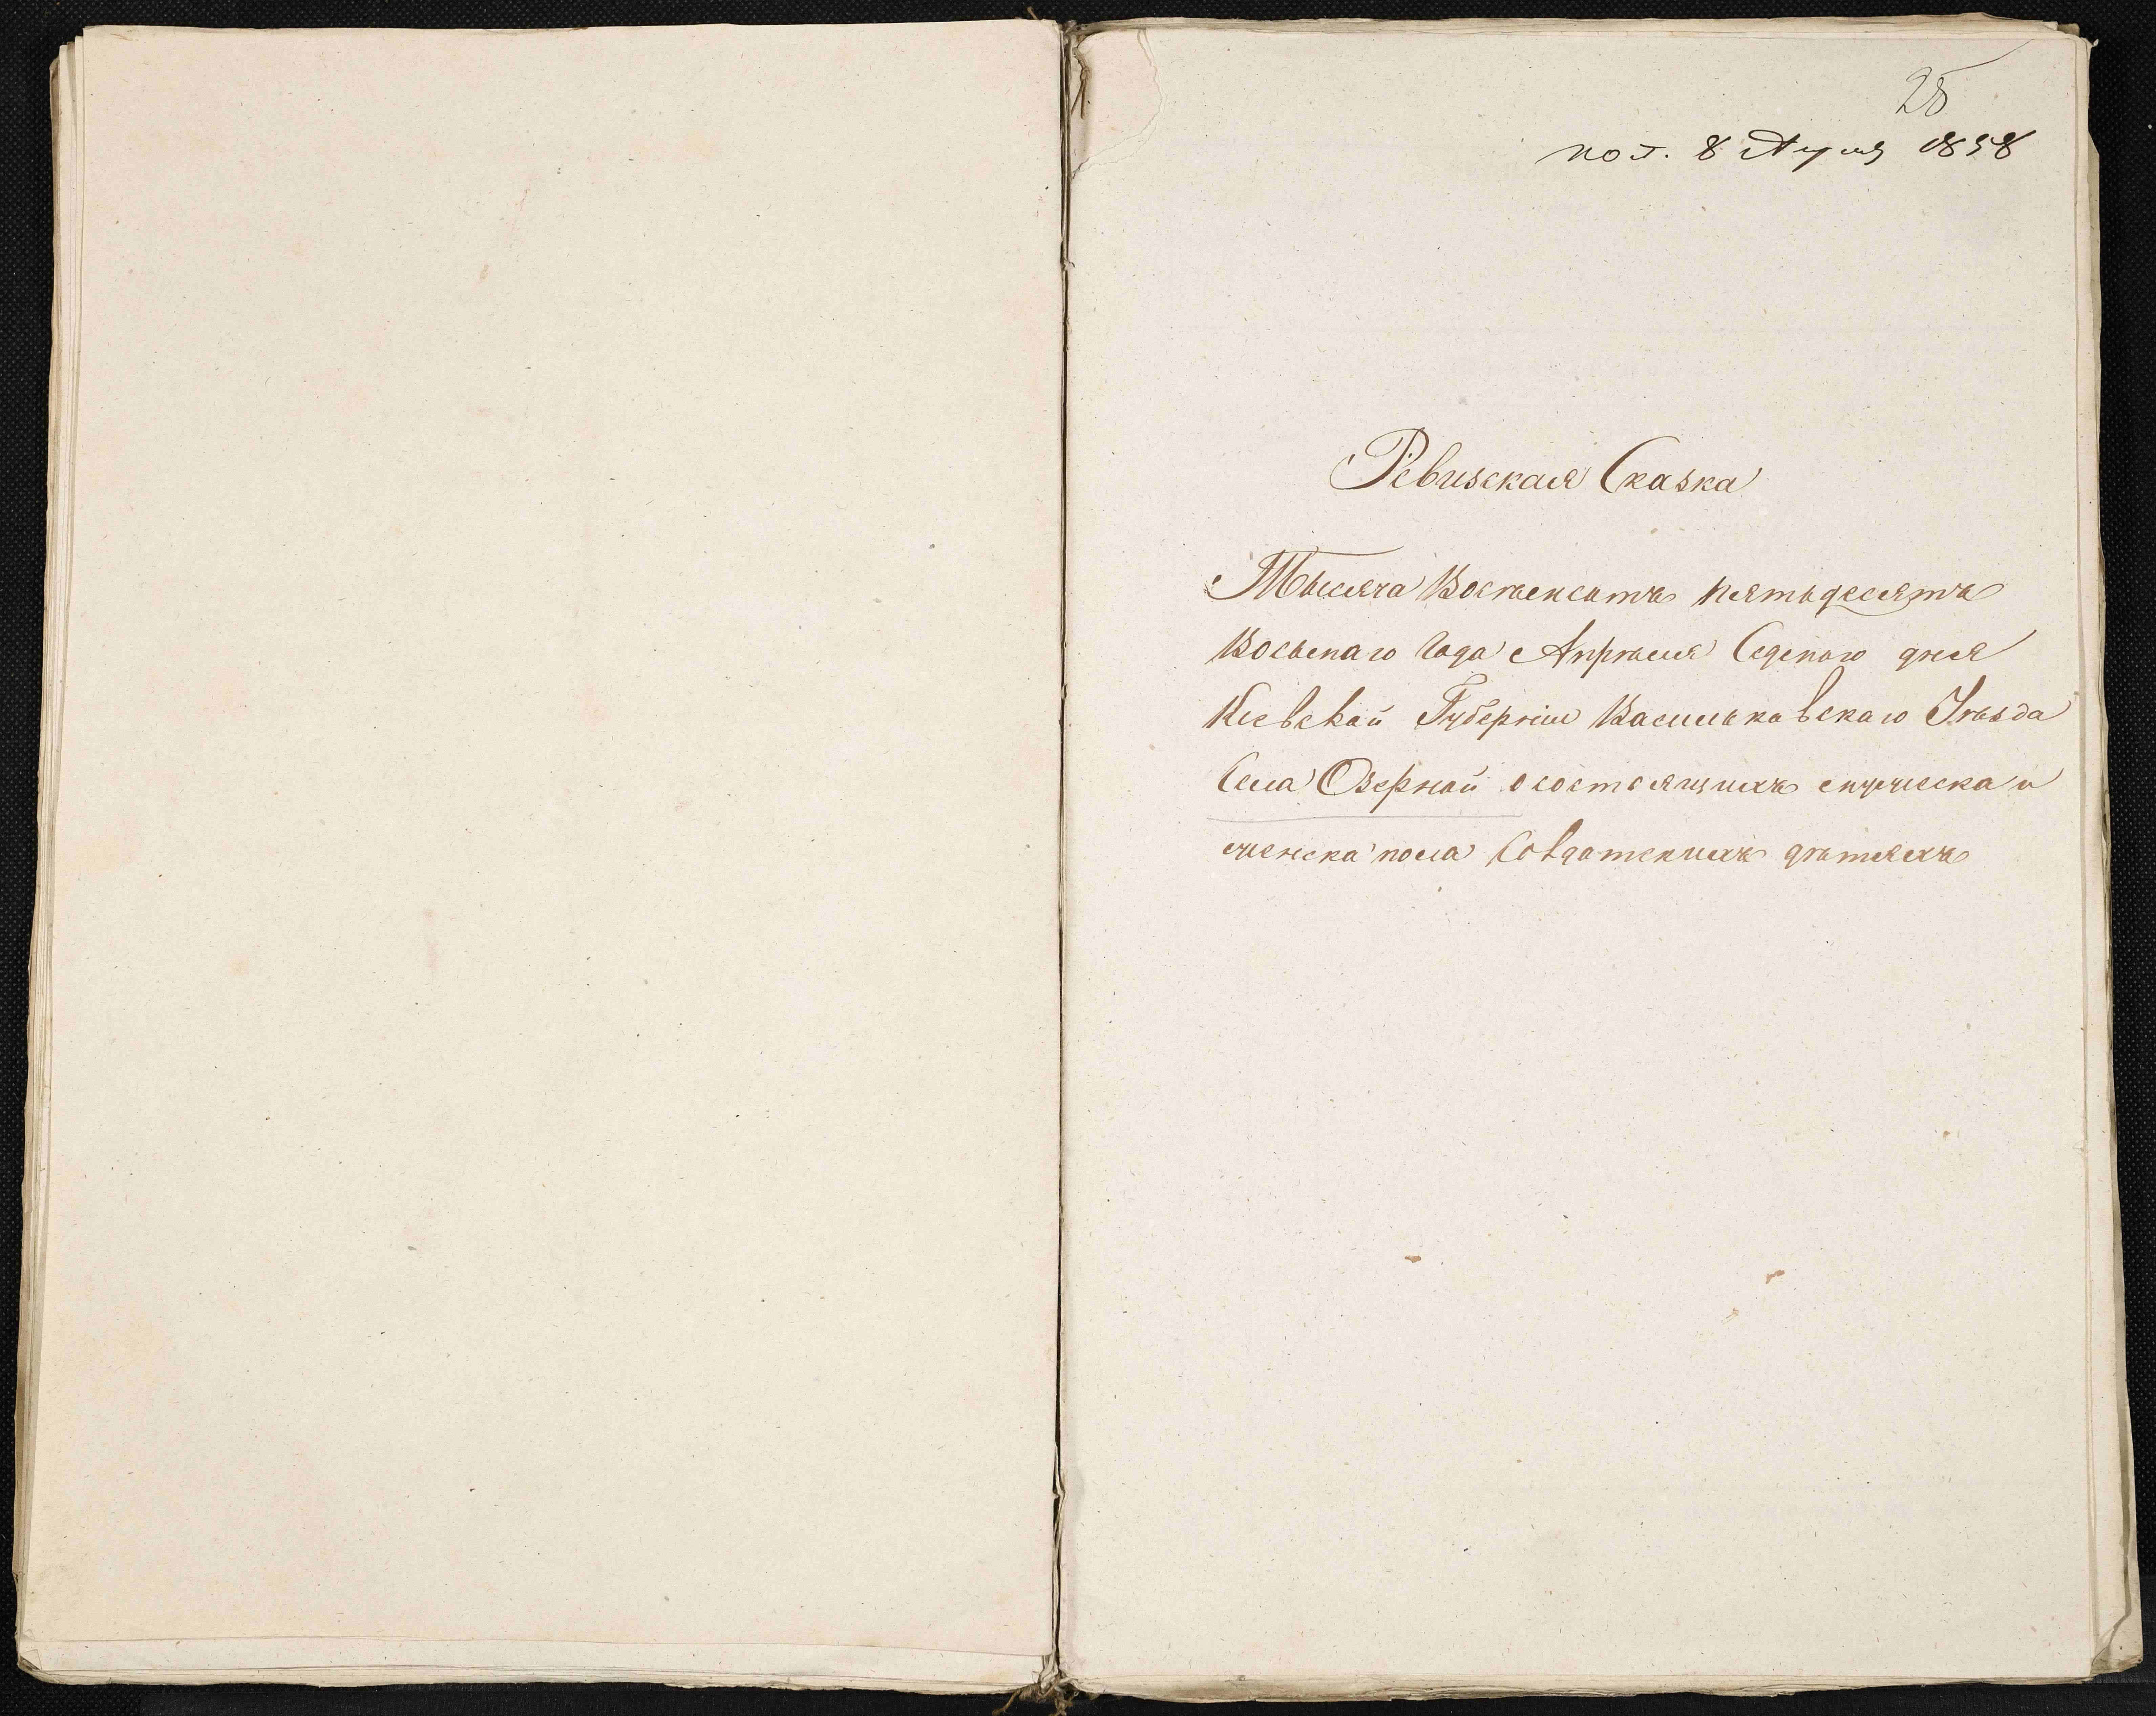 25
пол. 8 Апреля 1858
Ревизская Сказка
Тысяча Восѣмсотъ пятьдесятъ
Восьмаго Года Апрѣля Седмого дня
Киевской Губерніи Васильковскаго Уѣзда
Села Озерной о состоящихъ мужеска и
женска пола Солдатскихъ дѣтяхъ